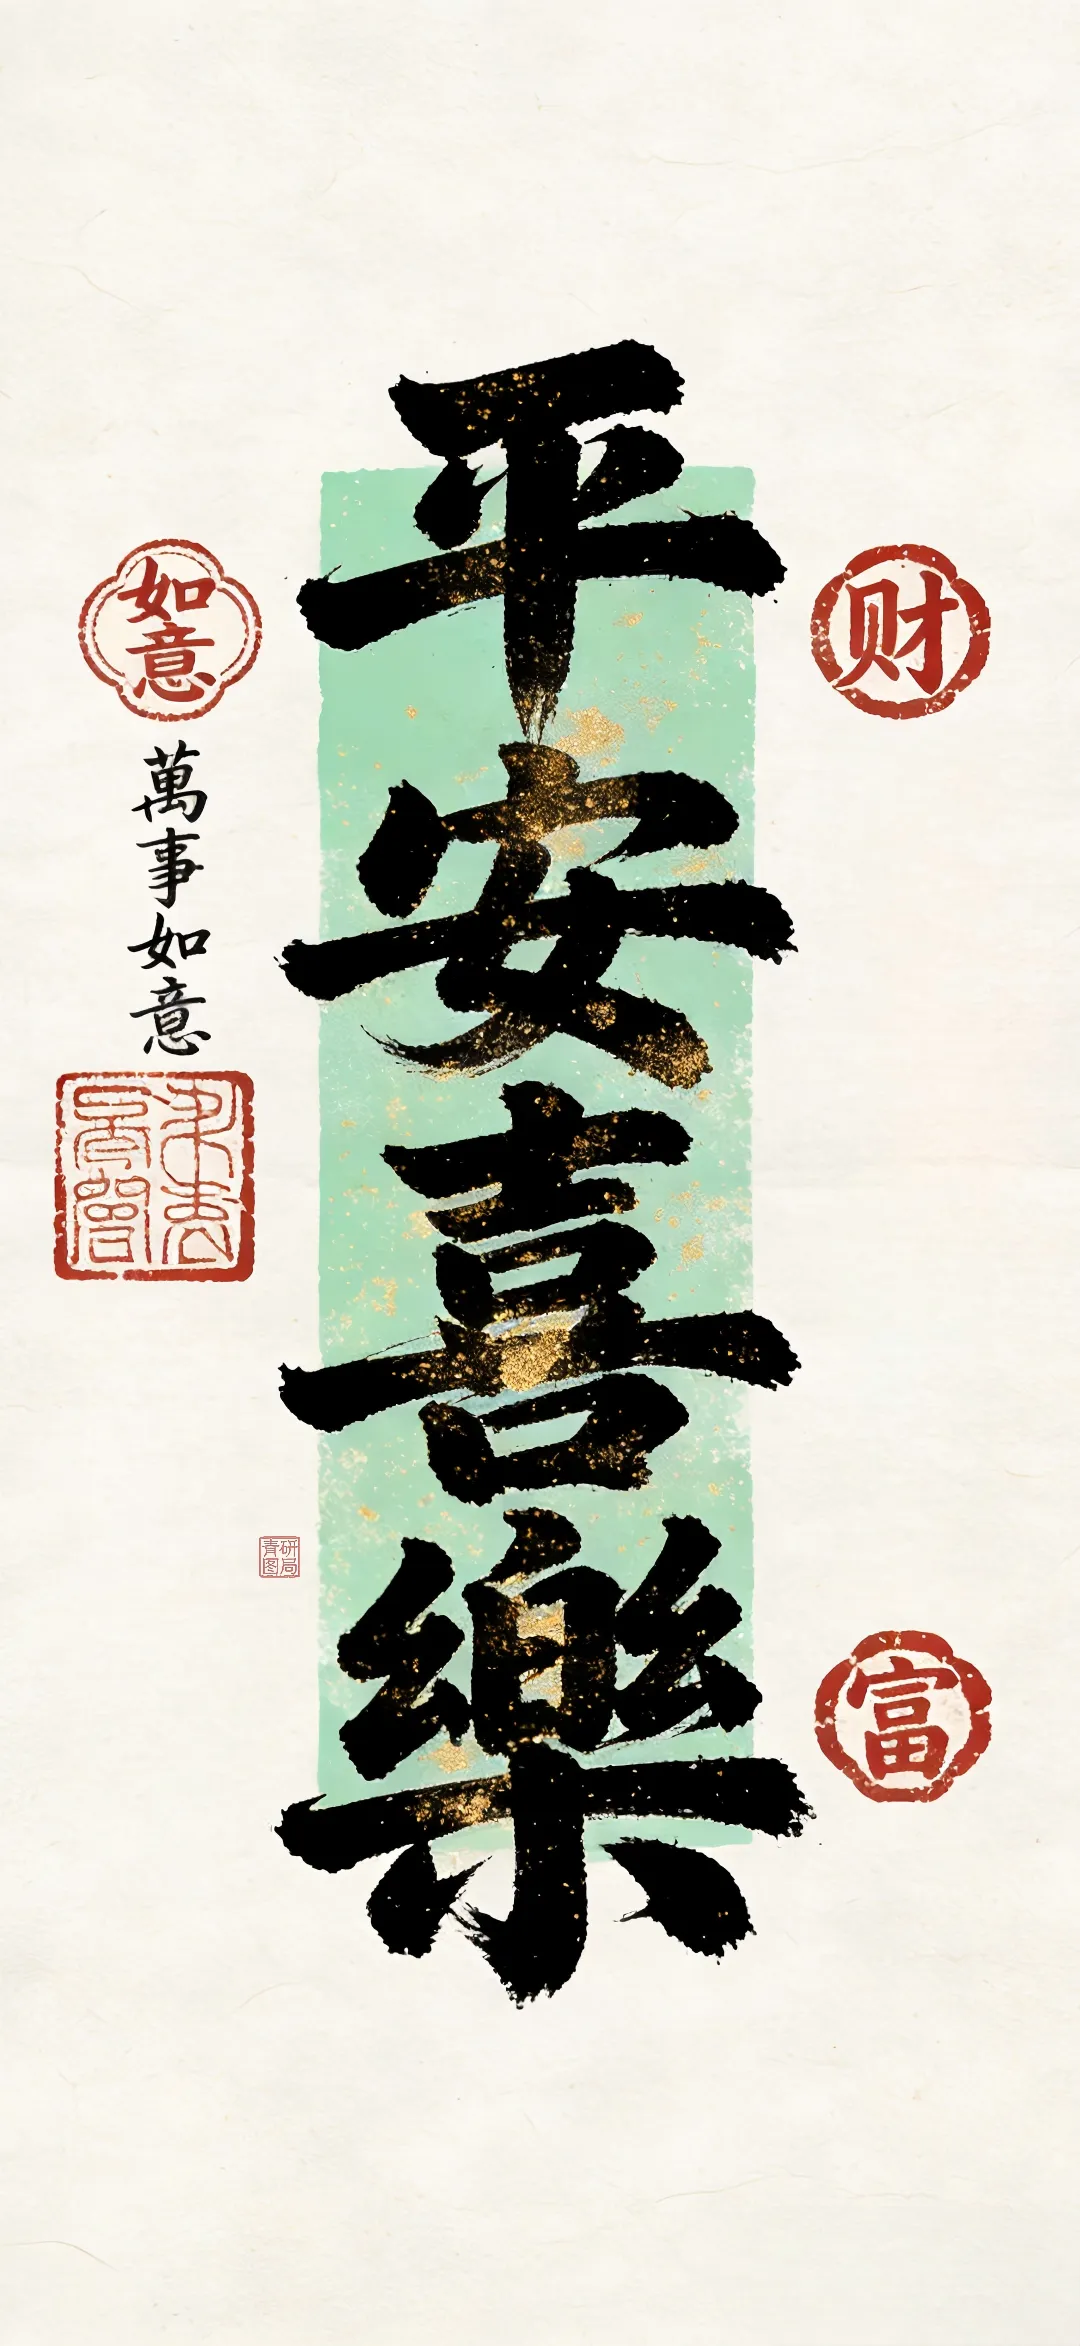 平安喜樂
财
富
如意
萬事如意
青研
图局